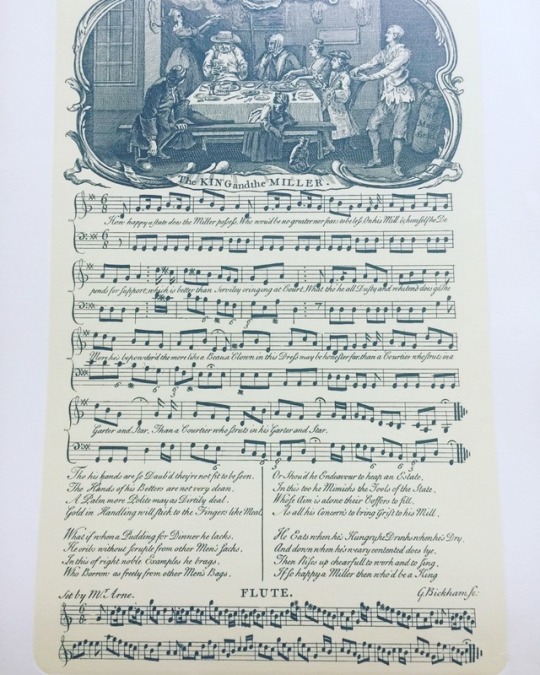 The KING and the MILLER.
How happy a state does the Miller possess, Who wou'd be no greater nor fear to be less, On his Mill & himself he De
pends for support, which is better than Servilely cringing at Court, What tho he all Dusty and whiten'd does go, the
More he's bepowder'd the more like a Beau; A Clown in this Dress may be honester far, than a Courtier who struts in a
Garter and Star. Than a Courtier who struts in his Garter and Star.
Tho his hands are so Daub'd they're not fit to be seen,
The Hands of his Betters are not very clean.
A Palm more Polite may as Dirtily deal
Gold in Handling will stick to the Fingers like Meal.
What if when a Pudding for Dinner he lacks,
He cribs without scruple from other Men's Sacks.
In this of right noble Examples he brags,
Who Borrow as freely from other Men's Bags.
Or Should he Endeavour to heap an Estate,
In this too he Mimicks the Tools of the State.
Whose Aim is alone their Coffers to fill,
As all his Concern's to bring Grist to his Mill.
He Eats when he's Hungry, he Drinks when he's Dry,
And down when he's weary contented does lye.
Then Rises up chearfull to work and to sing,
If so happy a Miller then who'd be a King
Set by Mr. Arne.
FLUTE.
G Bickham sc: